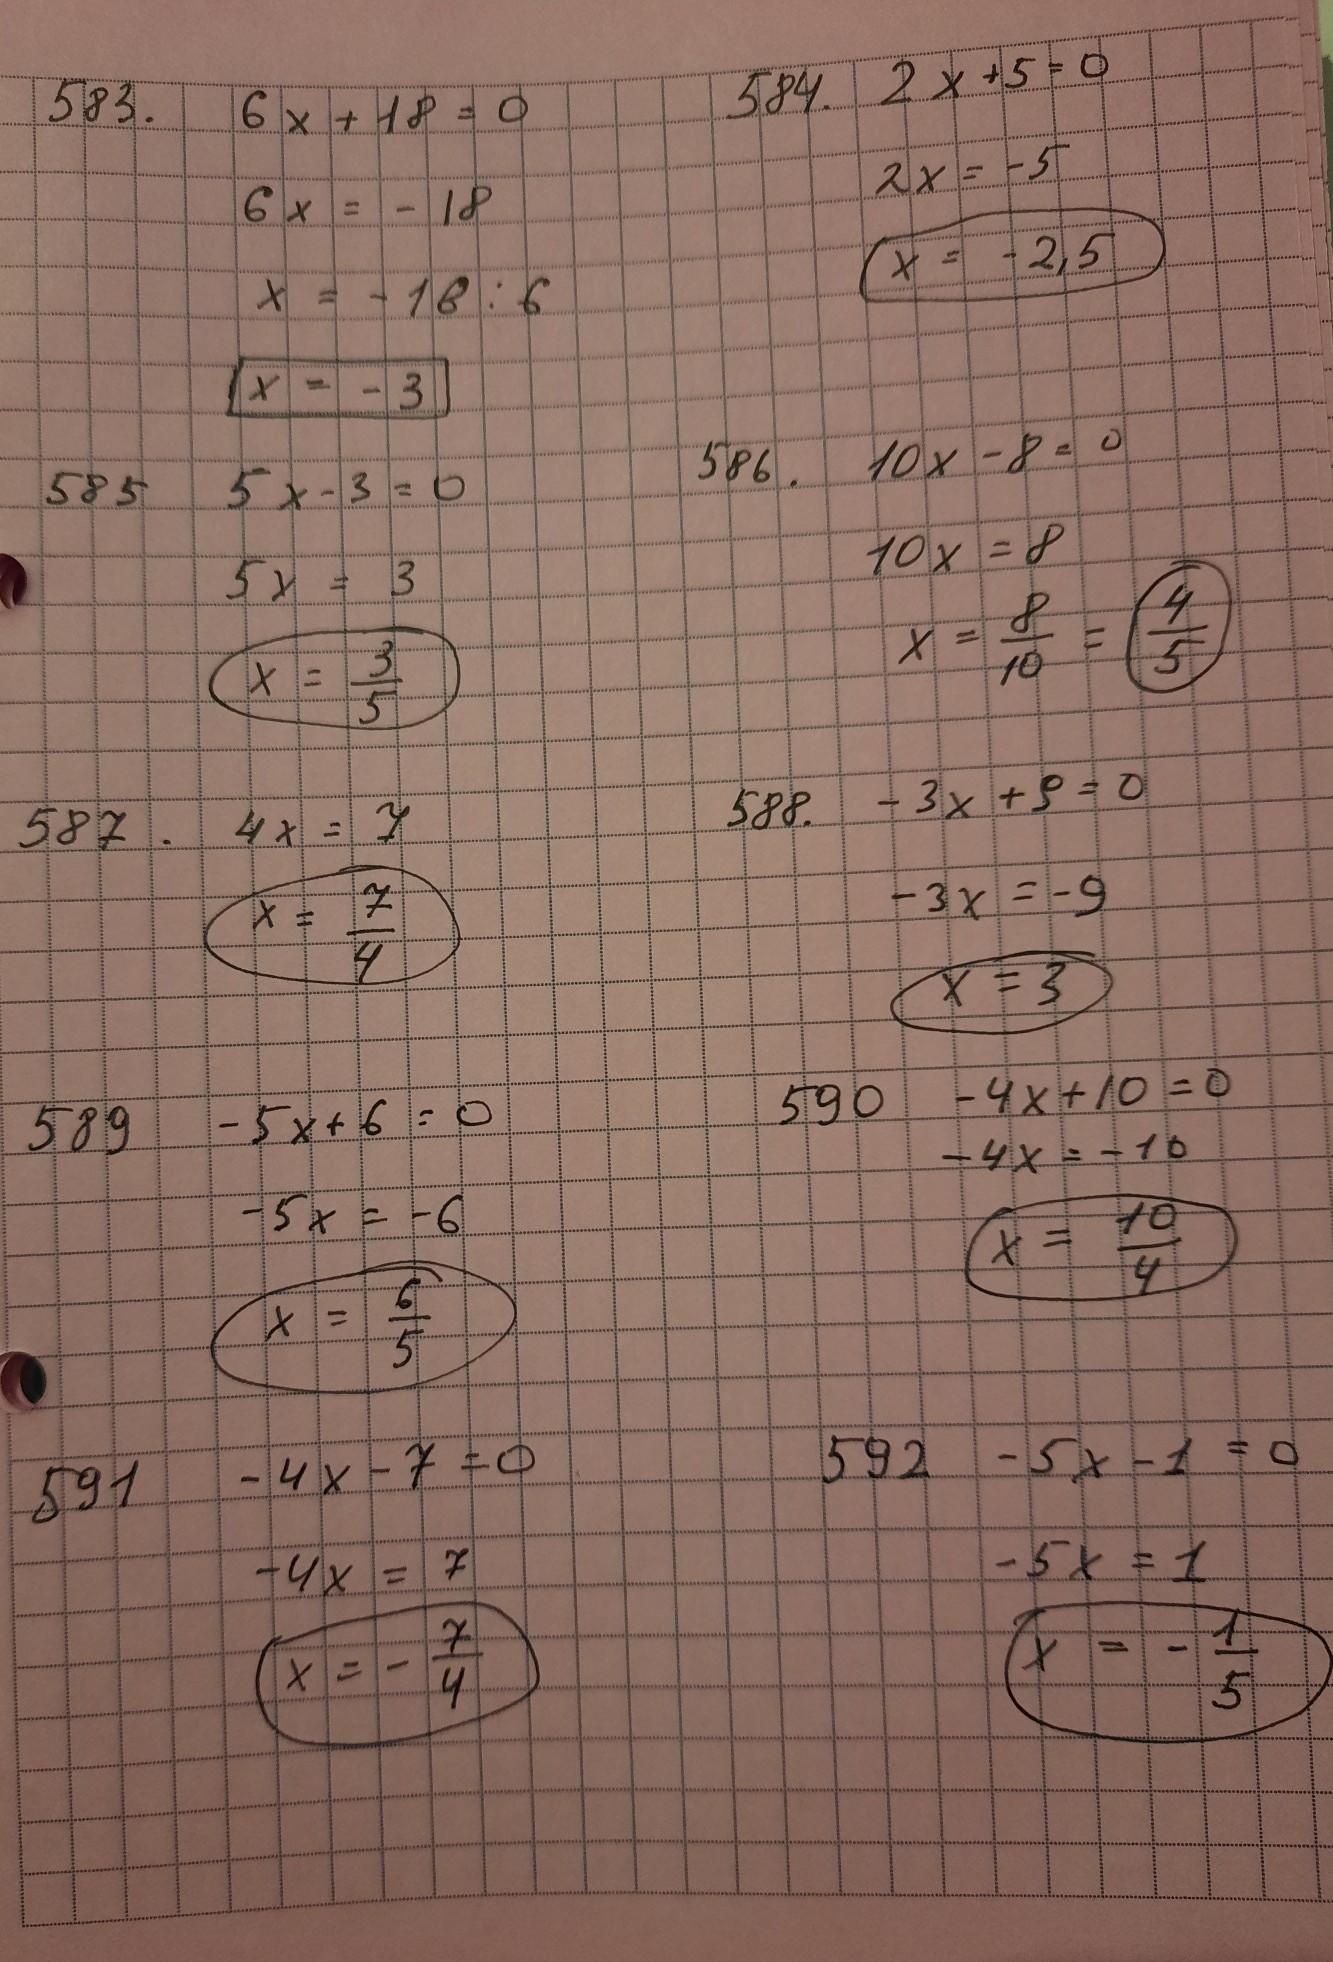 583. 6x + 18 = 0
6x = - 18
x = - 18 : 6
x = - 3
584. 2x + 5 = 0
2x = -5
x = - 2,5
585 5x - 3 = 0
5x = 3
x = 3/5
586. 10x - 8 = 0
10x = 8
x = 8/10 = 4/5
587. 4x = 7
x = 7/4
588. - 3x + 9 = 0
-3x = -9
x = 3
589 -5x + 6 = 0
-5x = -6
x = 6/5
590 -4x + 10 = 0
-4x = -10
x = 10/4
591 -4x - 7 = 0
-4x = 7
x = - 7/4
592 -5x - 1 = 0
-5x = 1
x = - 1/5